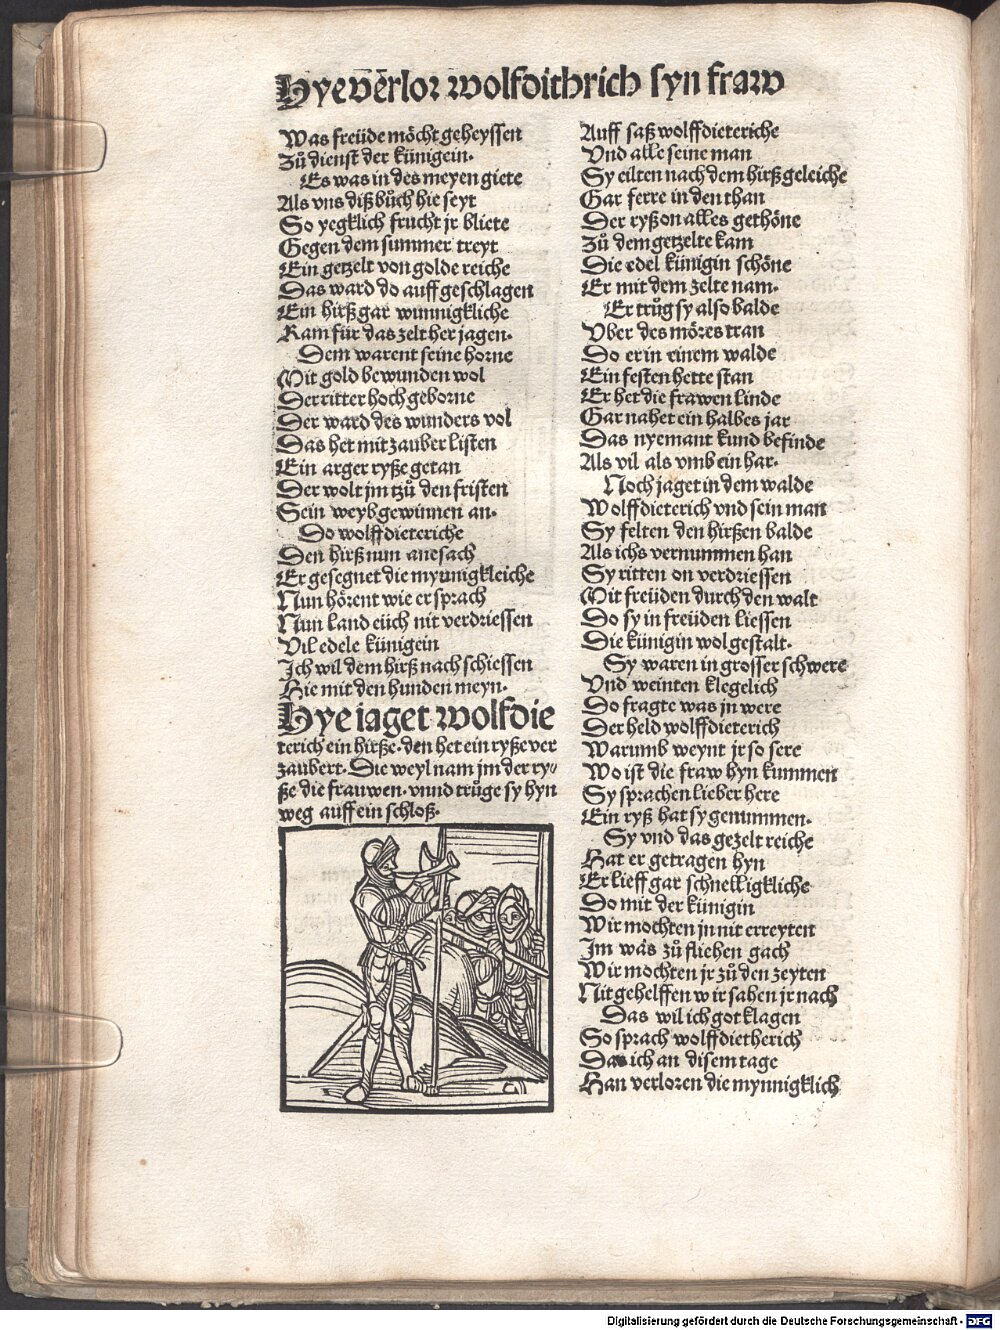 Hye verlor wolfdithrich syn fraw
Was freüde möcht geheyssen
Zů dienst der künigein.
Es was in des meyen giete
Als vns diß bůch hie seyt
So yegklich frucht jr bliete
Gegen dem summer treyt
Ein getzelt von golde reiche
Das ward do auff geschlagen
Ein hirß gar wunnigkliche
Kam für das zelt her jagen.
Dem warent seine horne
Mit gold bewunden wol
Der ritter hoch geborne
Der ward des wunders vol
Das het mit zauber listen
Ein arger ryße getan
Der wolt jm tzů den fristen
Sein weyb gewinnen an.
Do wolff dieteriche
Den hirß nun anesach
Er gesegnet die mynnigkleiche
Nun hörent wie er sprach
Nun land eüch nit verdriessen
Vil edele künigein
Ich wil dem hirß nach schiessen
Hie mit den hunden meyn.
Hye iaget wolfdie
terich ein hirße. den het ein ryße ver
zaubert. Die weyl nam jm der ry⸗
ße die frauwen. vnnd trůge sy hyn
weg auff ein schloß.
Auff saß wolffdieteriche
Vnd alle seine man
Sy eilten nach dem hirß geleiche
Gar ferre in den than
Der ryß on alles gethöne
Zů dem getzelte kam
Die edel künigin schöne
Er mit dem zelte nam.
Er trůg sy also balde
Vber des möres tran
Do er in einem walde
Ein festen hette stan
Er het die frawen linde
Gar nahet ein halbes jar
Das nyemant kund befinde
Als vil als vmb ein har.
Noch jaget in dem walde
Wolffdieterich vnd sein man
Sy felten den hirßen balde
Als ichs vernummen han
Sy ritten on verdriessen
Mit freüden durch den walt
Do sy in freüden liessen
Die künigin wol gestalt.
Sy waren in grosser schwere
Vnd weinten klegelich
Do fragte was jn were
Der held wolffdieterich
Warumb weynt jr so sere
Wo ist die fraw hyn kummen
Sy sprachen lieber here
Ein ryß hat sy genummen.
Sy vnd das gezelt reiche
Hat er getragen hyn
Er lieff gar schnelligkliche
Do mit der künigin
Wir mochten jn nit erreyten
Im was zů fliehen gach
Wir mochten jr zů den zeyten
Nit gehelffen wir sahen jr nach
Das wil ich got klagen
So sprach wolffdietherich
Das ich an disem tage
Han verloren die mynnigklich
Digitalisierung gefördert durch die Deutsche Forschungsgemeinschaft - DFG